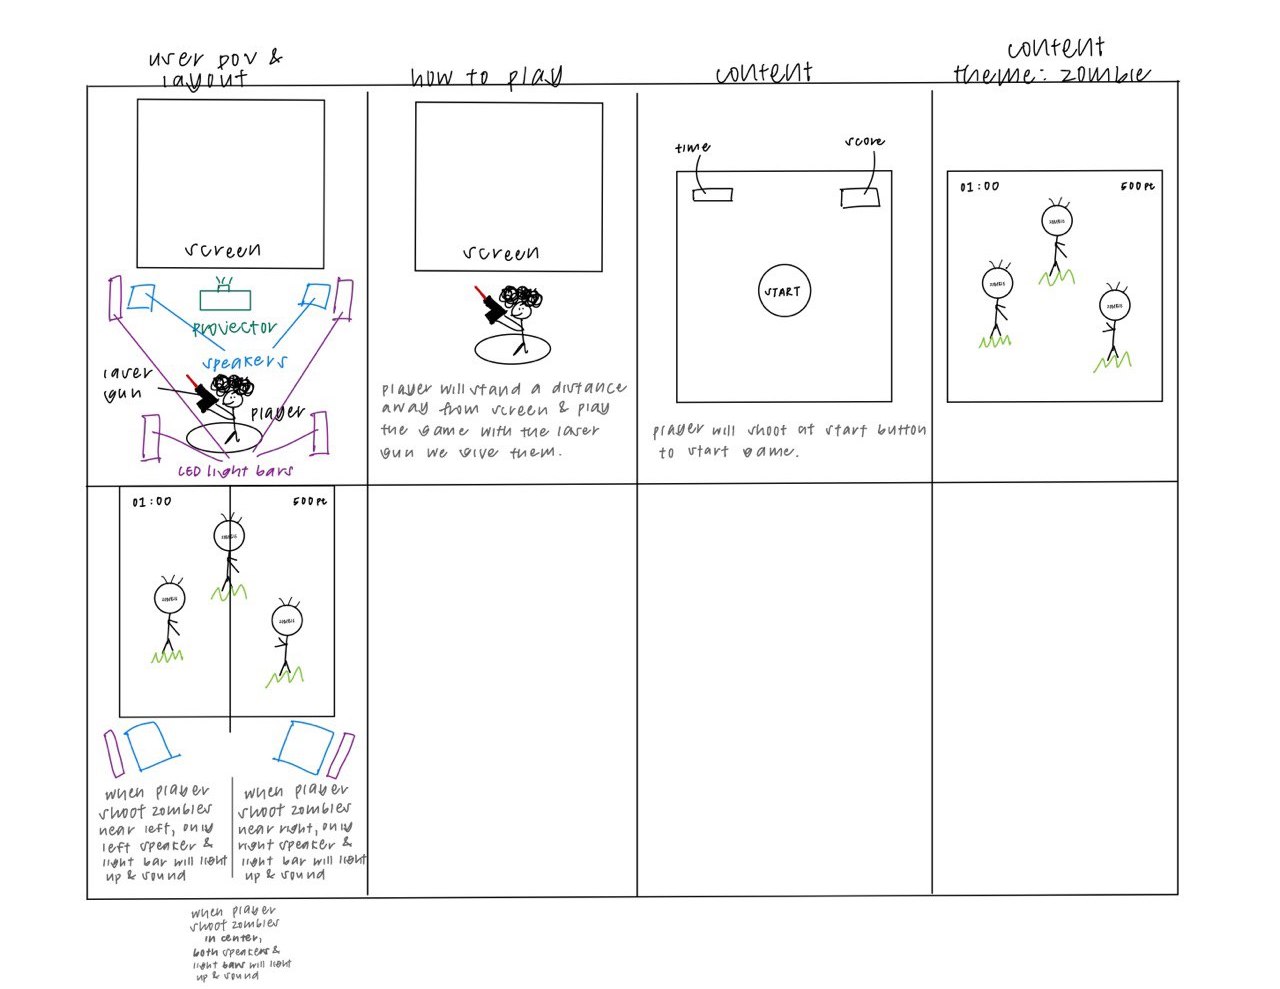 user pov &
layout
how to play
content
content
theme: zombie
screen
projector
speakers
laser
gun
player
LED light bars
screen
player will stand a distance
away from screen & play
the game with the laser
gun we give them.
time
score
START
player will shoot at start button
to start game.
01:00
500pt
ZOMBIE
ZOMBIE
ZOMBIE
01:00
500pt
ZOMBIE
ZOMBIE
ZOMBIE
when player
shoot zombies
near left, only
left speaker &
light bar will light
up & sound
when player
shoot zombies
near right, only
right speaker &
light bar will light
up & sound
when player
shoot zombies
in center,
both speakers &
light bars will light
up & sound